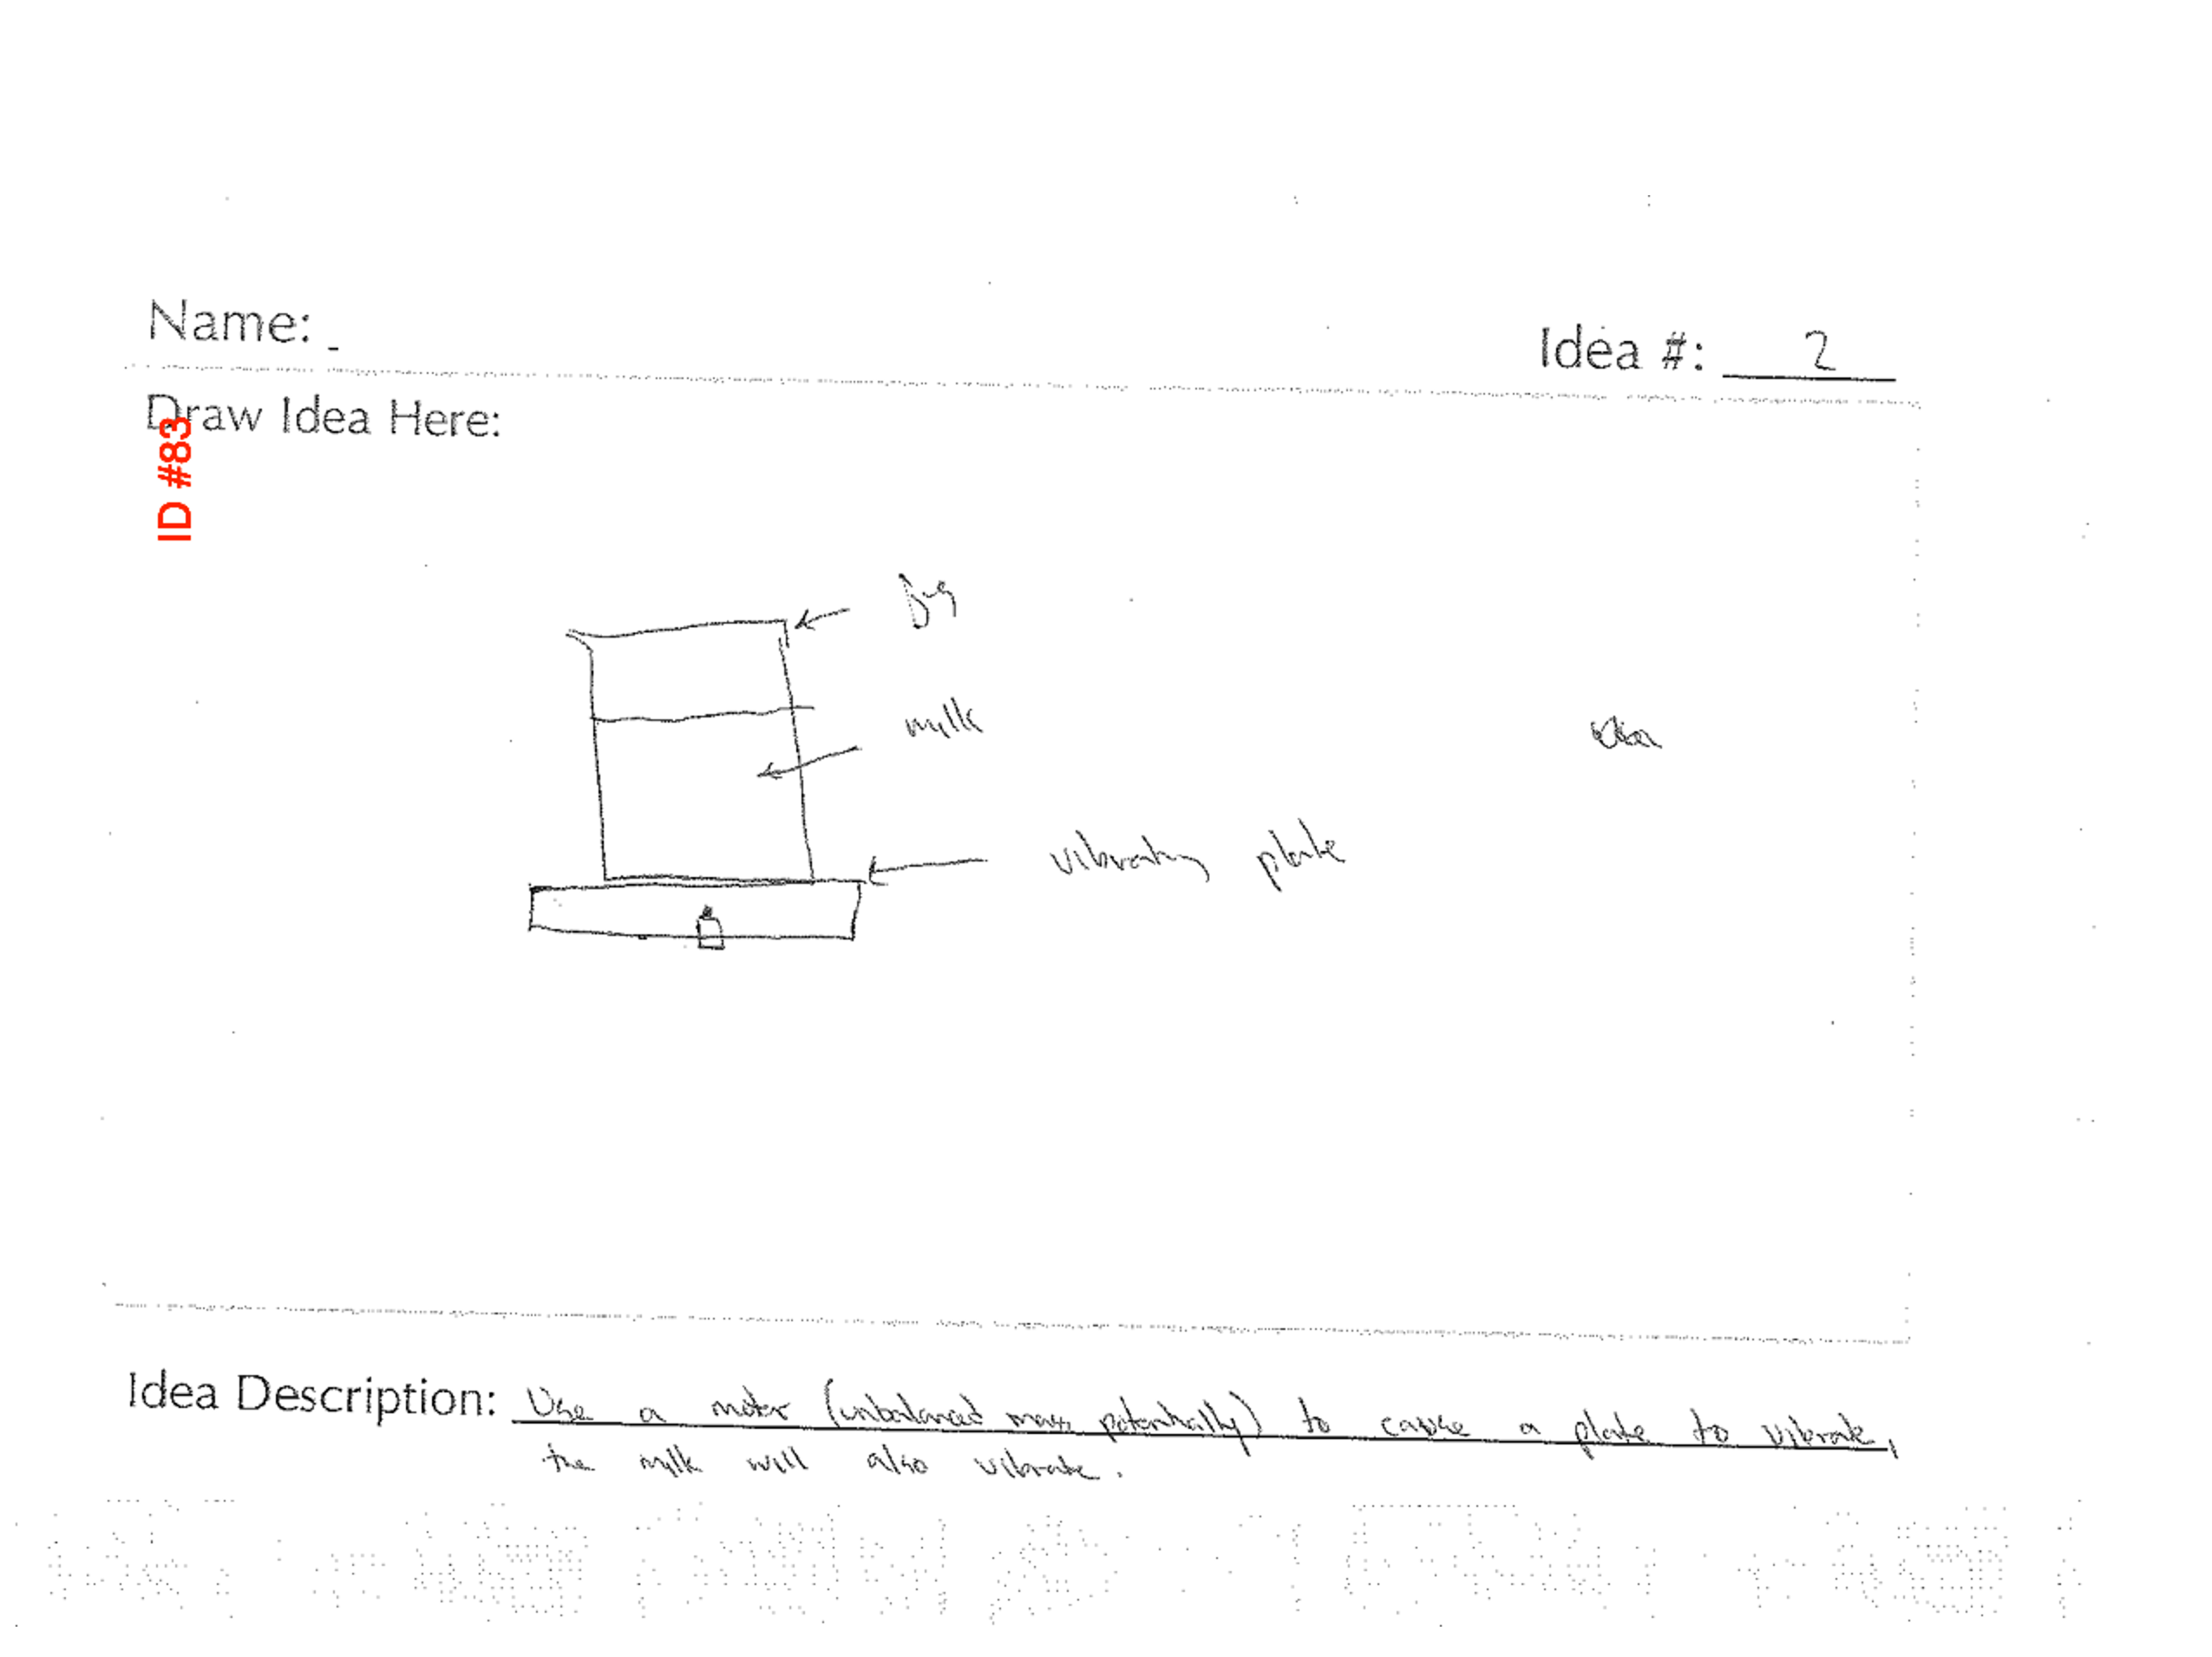 Name:
Idea #: 2
Draw Idea Here:
ID #83
Jug
milk
vibrating plate
Idea Description: Use a motor (unbalanced mass potentially) to cause a plate to vibrate,
the milk will also vibrate.